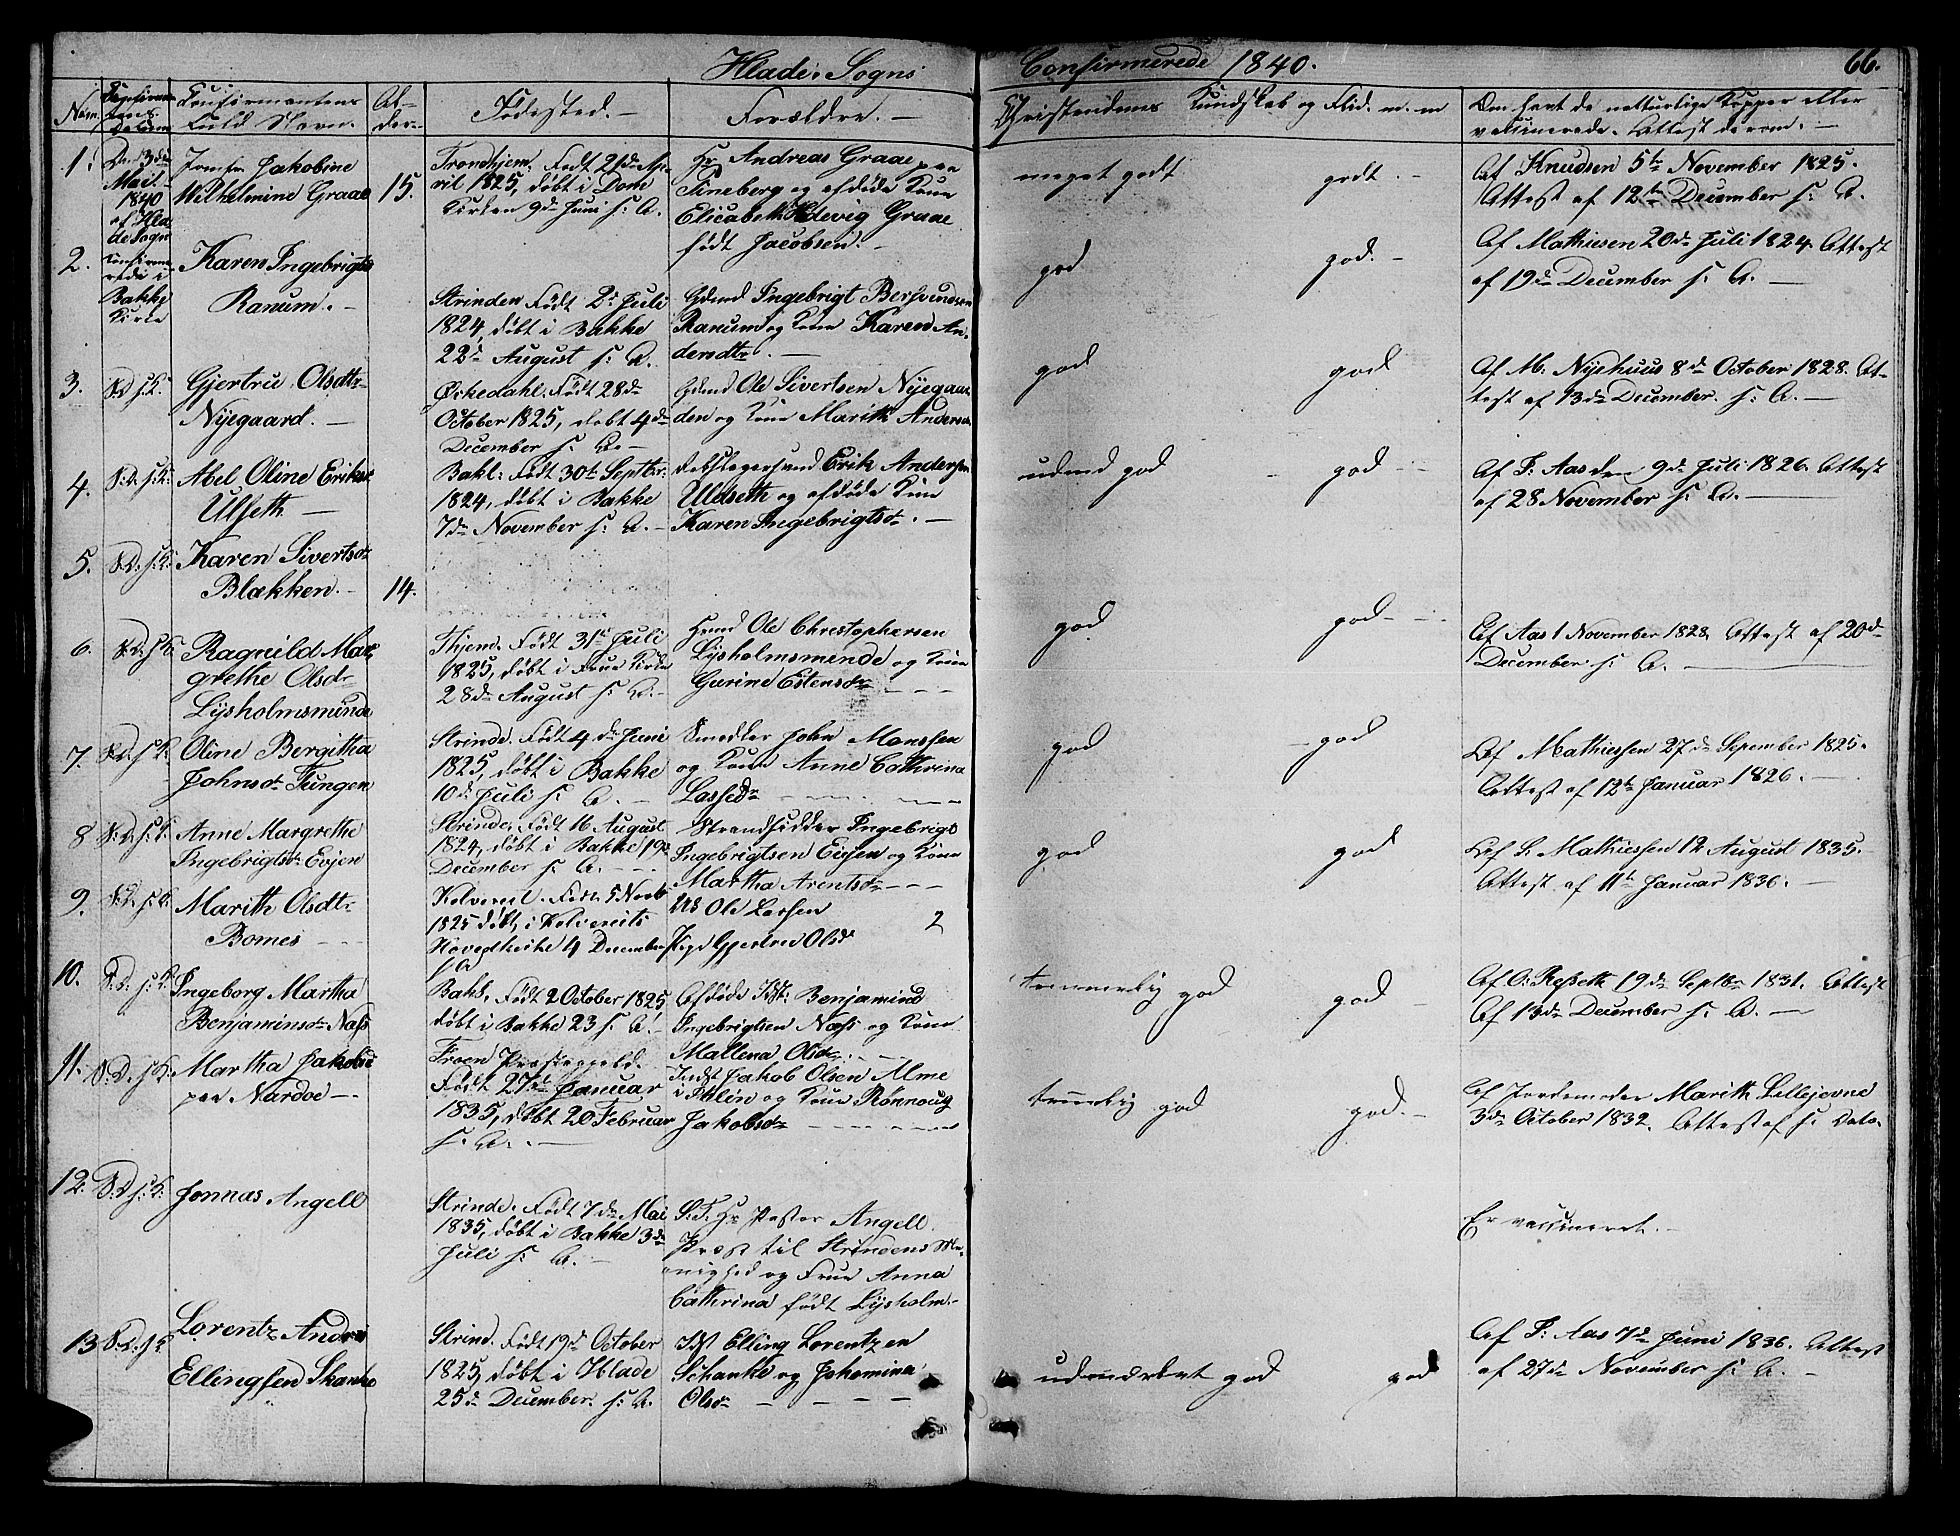 Hlade Sogns Confirmerede 1840. 66.
Confirmantens Fuld Navn. Al- der. Fødested. Forældre. Christendoms Kundskab og Flid. m. m Om havt de naturlige Kopper eller vaccinerede. Attest derom.
1. Den 3die Mai 1840 af Hlade Sogn Confirmerede i Bakke Kirke
Jomfr. Jakobine
Wilhelmine Graae
15.
Trondhjem. Født 21de Ap-
ril 1825, døbt i Dom
Kirken 9de Juni s. A.
Hr Andreas Graae paa
Tineberg og afdøde Kone
Elisabeth Hedevig Graae
født Jacobsen.
meget godt godt.
Af Knudsen 5te November 1825.
Attest af 12te December s. A.
2.
Karen Ingebrigts
Ranum.
Strinden Født 2de Juli
1824, døbt i Bakke
22de August s. A.
Gdmd Ingebrigt Bersvendsen
Ranum og Kone Karen An-
dersdtr.
god god.
Af Mathiesen 20de Juli 1824. Attest
af 19de December s. A.
3. S. D. s. K.
Gjertru Olsdtr
Nyegaard.
Ørkedahl. Født 28de
October 1825, døbt 4de
December s. A.
Gdmd Ole Sivertsen Nyegaar
den og Kone Marith Anders
god god
Af M. Nyehuus 8de October 1828. At-
test af 13de December. s. A.
4. S. D. s. K.
Abel Oline Eriksd
Ulseth
Bakl: Født 30te Septbr:
1824, døbt i Bakke
7de November s. A.
Erik Andersen
Uldseth og afdøde Kone
Karen Ingebrigtsdr.
udmd god god
Af P. Aas den 9de Juli 1826. Attest
af 28 November s. A.
5. S. D. s. K.
Karen Sivertsdr
Blækken.
14.
6. S. D. s. K.
Ragnild Mar
grethe Olsdr
Lysholmsminde
Thjem. Født 31te Juli
1825, døbt i Frue Kirke
28de August s. A.
Huusmd Ole Christophersen
Lysholmsminde og Kone
Gurine Estensdr
god god
Af Aas 1 November 1828. Attest af 20de
December s. A.
7. S. D. s. K.
Oline Bergitha
Johnsdr Tungen
Strinde. Født 4de Juni
1825, døbt i Bakke
10de Juli s. A.
Smedker John Monssen
og Kone Anne Cathrina
Lassedr
god god
Af Mathiessen 27de Sepember 1825.
Attest af 12te Januar 1826.
8 S. D. s. K.
Anne Margrethe
Ingebrigtsdr Evjen
Strinde, Født 16 August
1824, døbt i Bakke 19de
December s. A.
Strandsidder Ingebrigt
Ingebrigtsen Evjen og Kone
Martha Arentsdr
god god
Af L. Mathiessen 12 August 1835.
Attest af 11te Januar 1836.
9. S. D. s. K.
Marith Olsdtr
Bomes
Født 5 Novb
1825 døbt i
Hovedkirke 4 December
s. A
Ole Larsen
Pige Gjertrud Olsdr
2
10. S. D. s. K.
Ingeborg Martha
Benjaminsdr Næss
Bakl. Født 2 October 1825
døbt i Bakke 23 s. A.
Afdøde Ist: Benjamind
Ingebrigtsen Næss og Kone
Mallena Olsdr
temmelig god god
Af O. Refseth 19de Septbr 1831. Attest
Af 13de December s. A.
11. S. D. s. K.
Martha Jakobsd
paa Nardoe
Præstegjeld.
Født 27de Januar
1835, døbt 20 Februar
s. A.
Indst Jakob Olsen Alme
i Ihlen og Kone Rønnoug
Jakobsdr
temmelig god god.
Af Jordemoder Marith Lillejevne
3de October 1832. Attest af s. Dato.
12. S. D. s. K.
Jonnas Angell
Strinde. Født 7de Mai
1835, døbt i Bakke 3de
Juli s. A.
S. T. Hr Pastor Angell.
Præst til Strindens Me-
nighed og Frue Anna
Cathrina født Lysholm.
Er vaccineret.
13 S. D. s. K.
Lorentz Andrias
Ellingsen Skanke
Strind. Født 19de October
1825, døbt i Hlade
25de December s. A.
Ist Elling Lorentzen
Schanke og Johamina
Olsdr
udmærket god god
Af P. Aas 7de Juni 1836. Attest
af 27de November s. A.